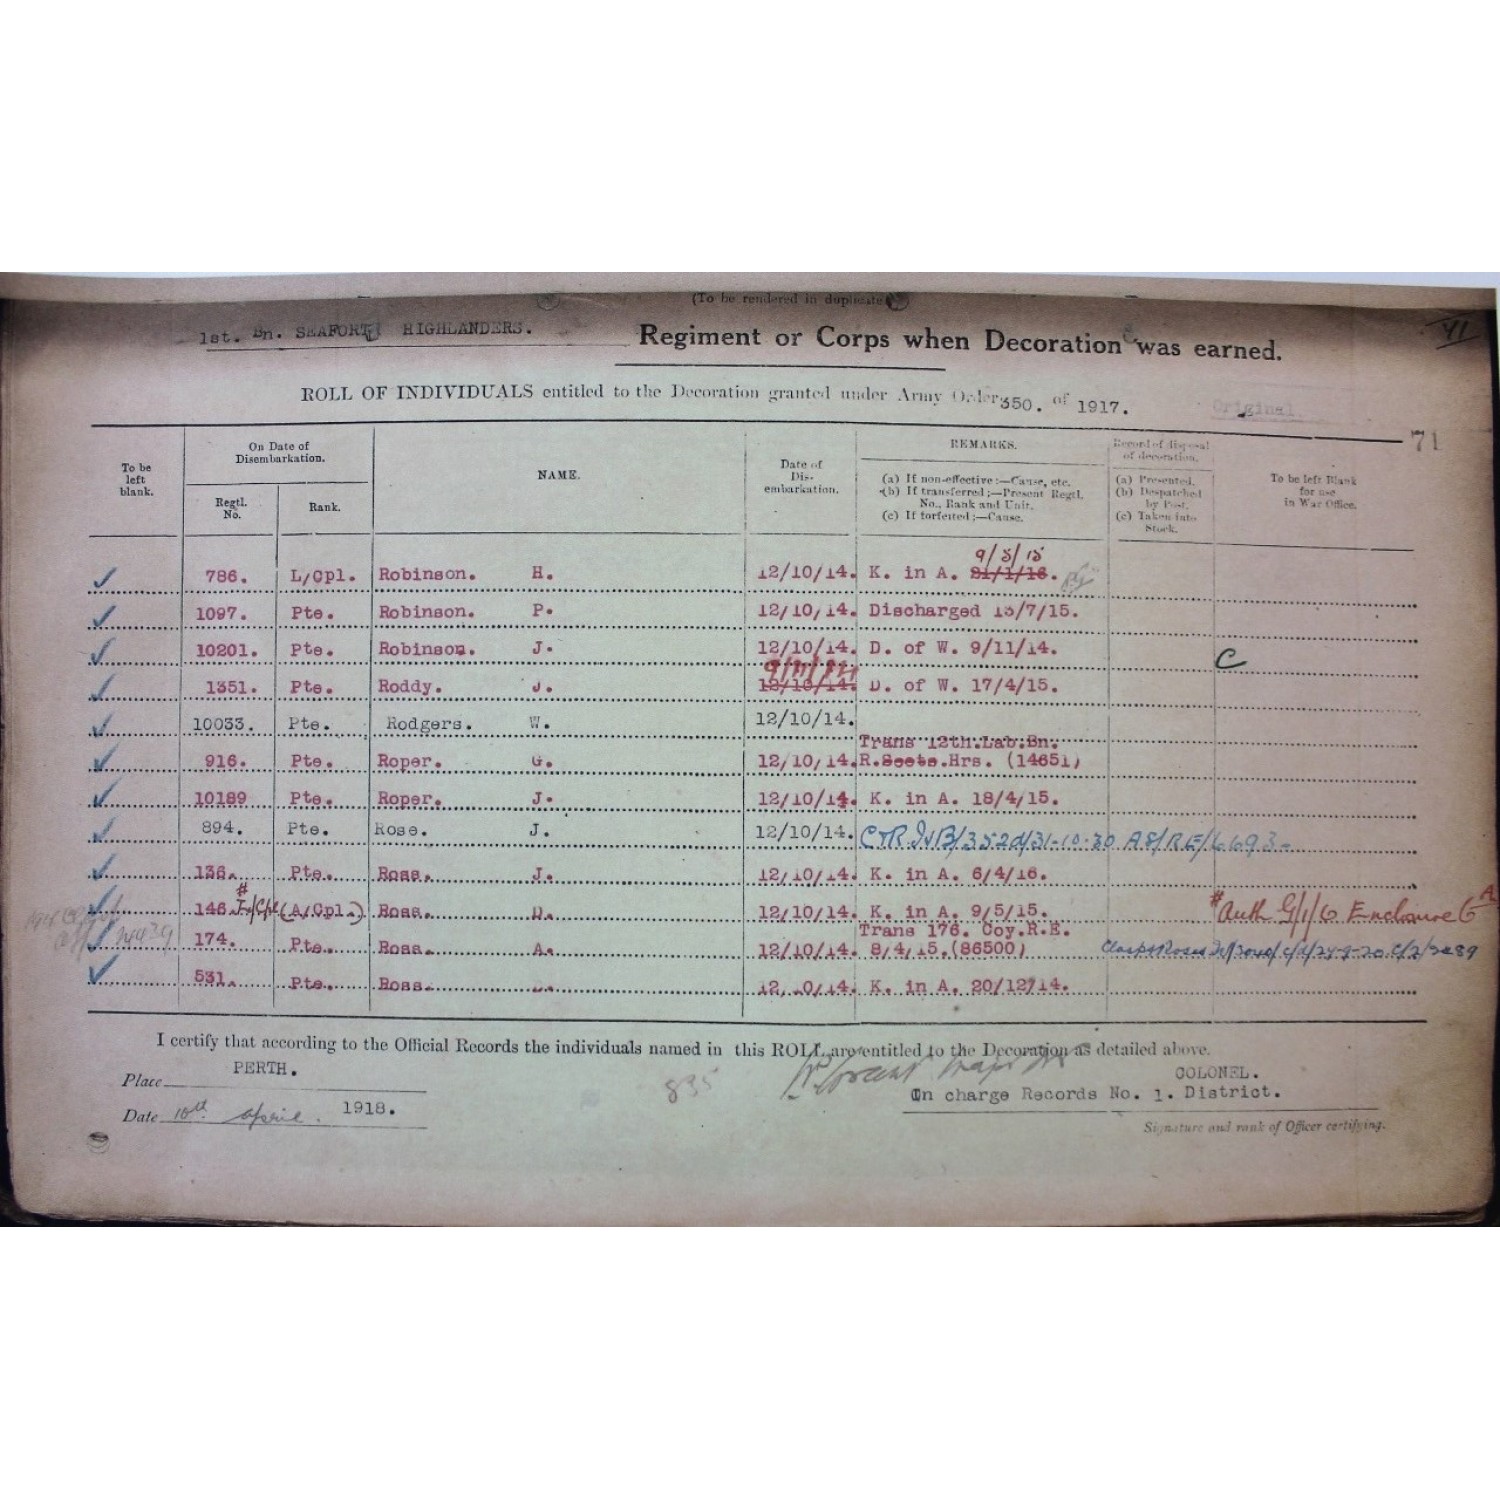 (To be rendered in duplicate)
1st. Bn. SEAFORTH HIGHLANDERS. Regiment or Corps when Decoration was earned. 71
ROLL OF INDIVIDUALS entitled to the Decoration granted under Army Order 350. of 1917. Original
71
To be left blank. On Date of Disembarkation. Regtl. No. Rank. NAME. Date of Dis-embarkation. REMARKS. (a) If non-effective:—Cause, etc. (b) If transferred:—Present Regtl. No., Rank and Unit. (c) If forfeited:—Cause. Record of disposal of decoration. (a) Presented. (b) Despatched by Post. (c) Taken into Stock. To be left Blank for use in War Office.
9/5/15
786. L/Cpl. Robinson. H. 12/10/14. K. in A. 21/1/16.
1097. Pte. Robinson. P. 12/10/14. Discharged 13/7/15.
10201. Pte. Robinson. J. 12/10/14. D. of W. 9/11/14. C
9/11/14
1351. Pte. Roddy. J. 12/10/14. D. of W. 17/4/15.
10033. Pte. Rodgers. W. 12/10/14.
Trans 12th.Lab.Bn.
916. Pte. Roper. G. 12/10/14. R.Scots.Hrs. (14651)
10189 Pte. Roper. J. 12/10/14. K. in A. 18/4/15.
894. Pte. Rose. J. 12/10/14. C&R IVB/352d/31-10-30 AS/RE/6693-
136. Pte. Ross. J. 12/10/14. K. in A. 6/4/16.
146. # (A/Cpl.) Ross. D. 12/10/14. K. in A. 9/5/15. # Auth G/1/6 Enclosure 6A
Trans 176. Coy.R.E.
174. Pte. Ross. A. 12/10/14. 8/4/15.(86500) Clasp & Roses
531. Pte. Ross. 12/10/14. K. in A. 20/12/14.
I certify that according to the Official Records the individuals named in this ROLL are entitled to the Decoration as detailed above.
Place PERTH. 835 COLONEL.
In charge Records No. 1. District.
Date 10th April. 1918.
Signature and rank of Officer certifying.